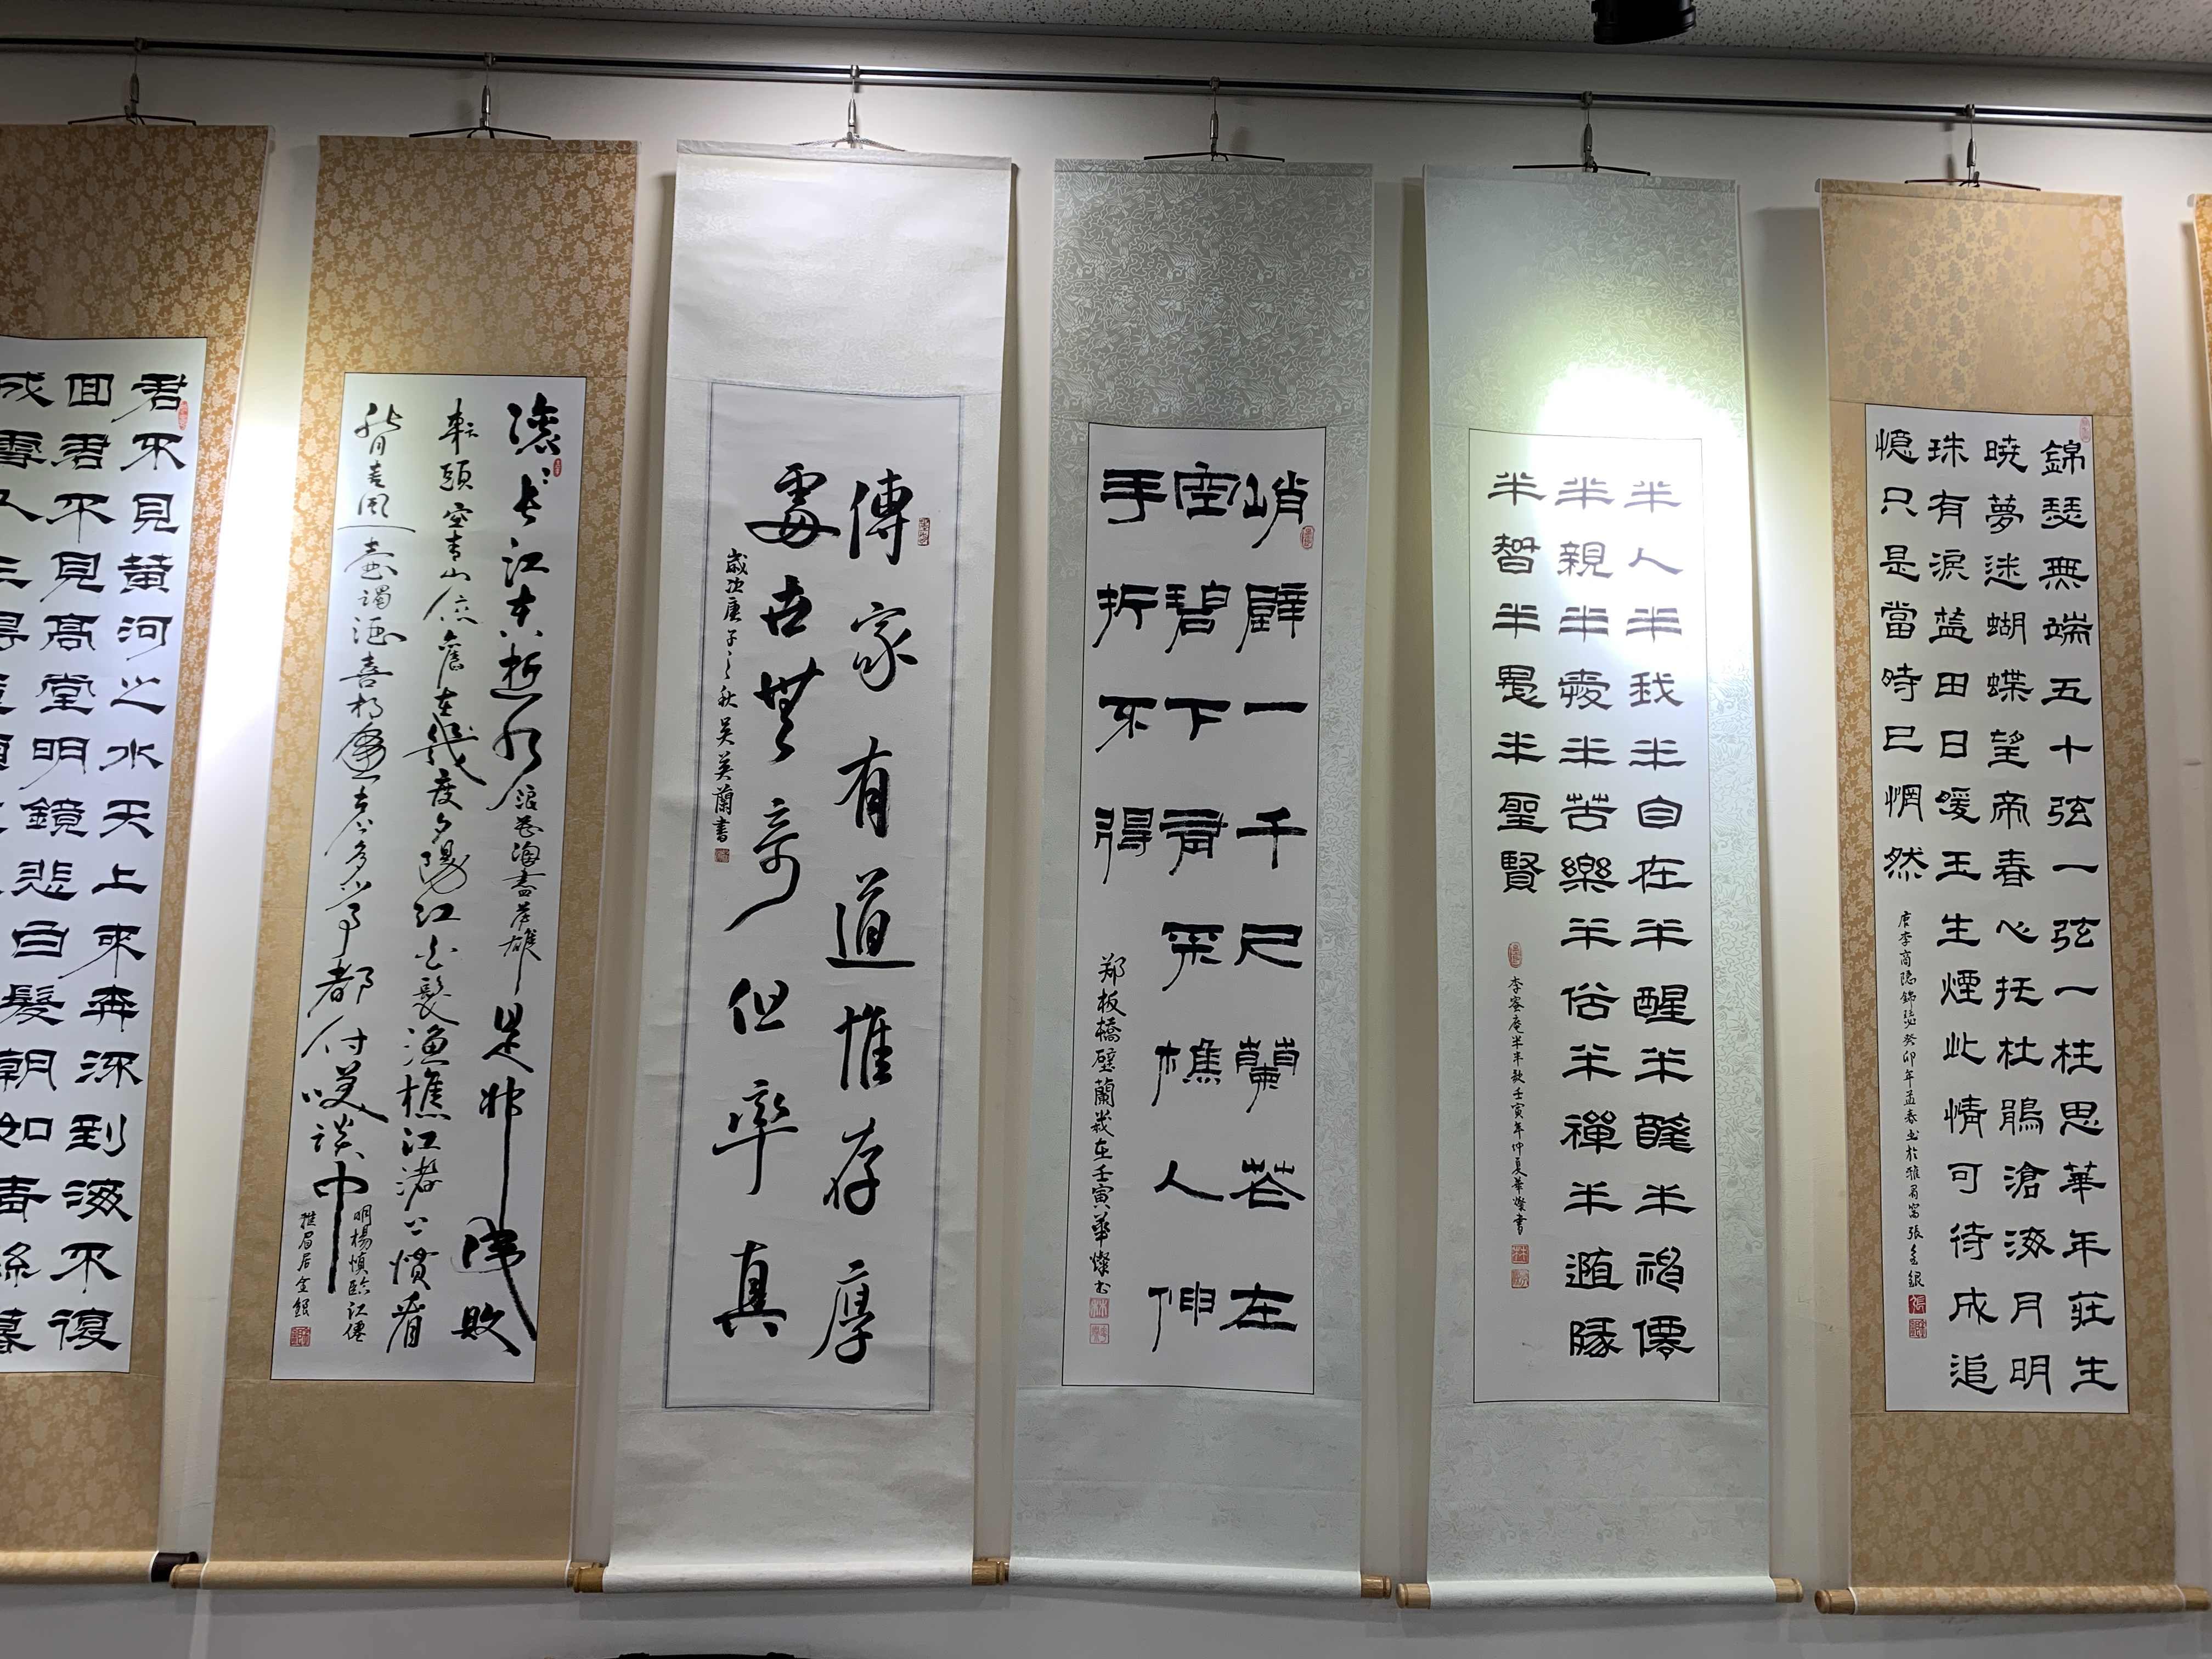 錦瑟無端五十弦一弦一柱思華年莊生
曉夢迷蝴蝶望帝春心托杜鵑滄海月明
珠有淚藍田日暖玉生煙此情可待成追
憶只是當時已惘然
唐李商隱錦瑟癸卯年孟春书於雅眉居張金銀
半人半我半自在半醒半醉半神僊
半親半愛半苦樂半俗半禪半隨緣
半智半愚半聖賢
李密庵半半歌壬寅年仲夏華燦書
峭壁一千尺蘭花在
空碧下有采樵人伸
手折不得
郑板橋壁蘭歲在壬寅華燦书
傳家有道惟存厚
處世無奇但率真
歲次庚子之秋吳英蘭書
滾滾長江東逝水浪花淘盡英雄是非成敗
轉頭空青山依舊在幾度夕陽紅白髮漁樵江渚上慣看
秋月春風一壺濁酒喜相逢古今多少事都付笑談中
明楊慎臨江僊
雅眉居金銀
君不見黃河之水天上來奔流到海不復
回君不見高堂明鏡悲白髮朝如青絲暮
成雪人生得